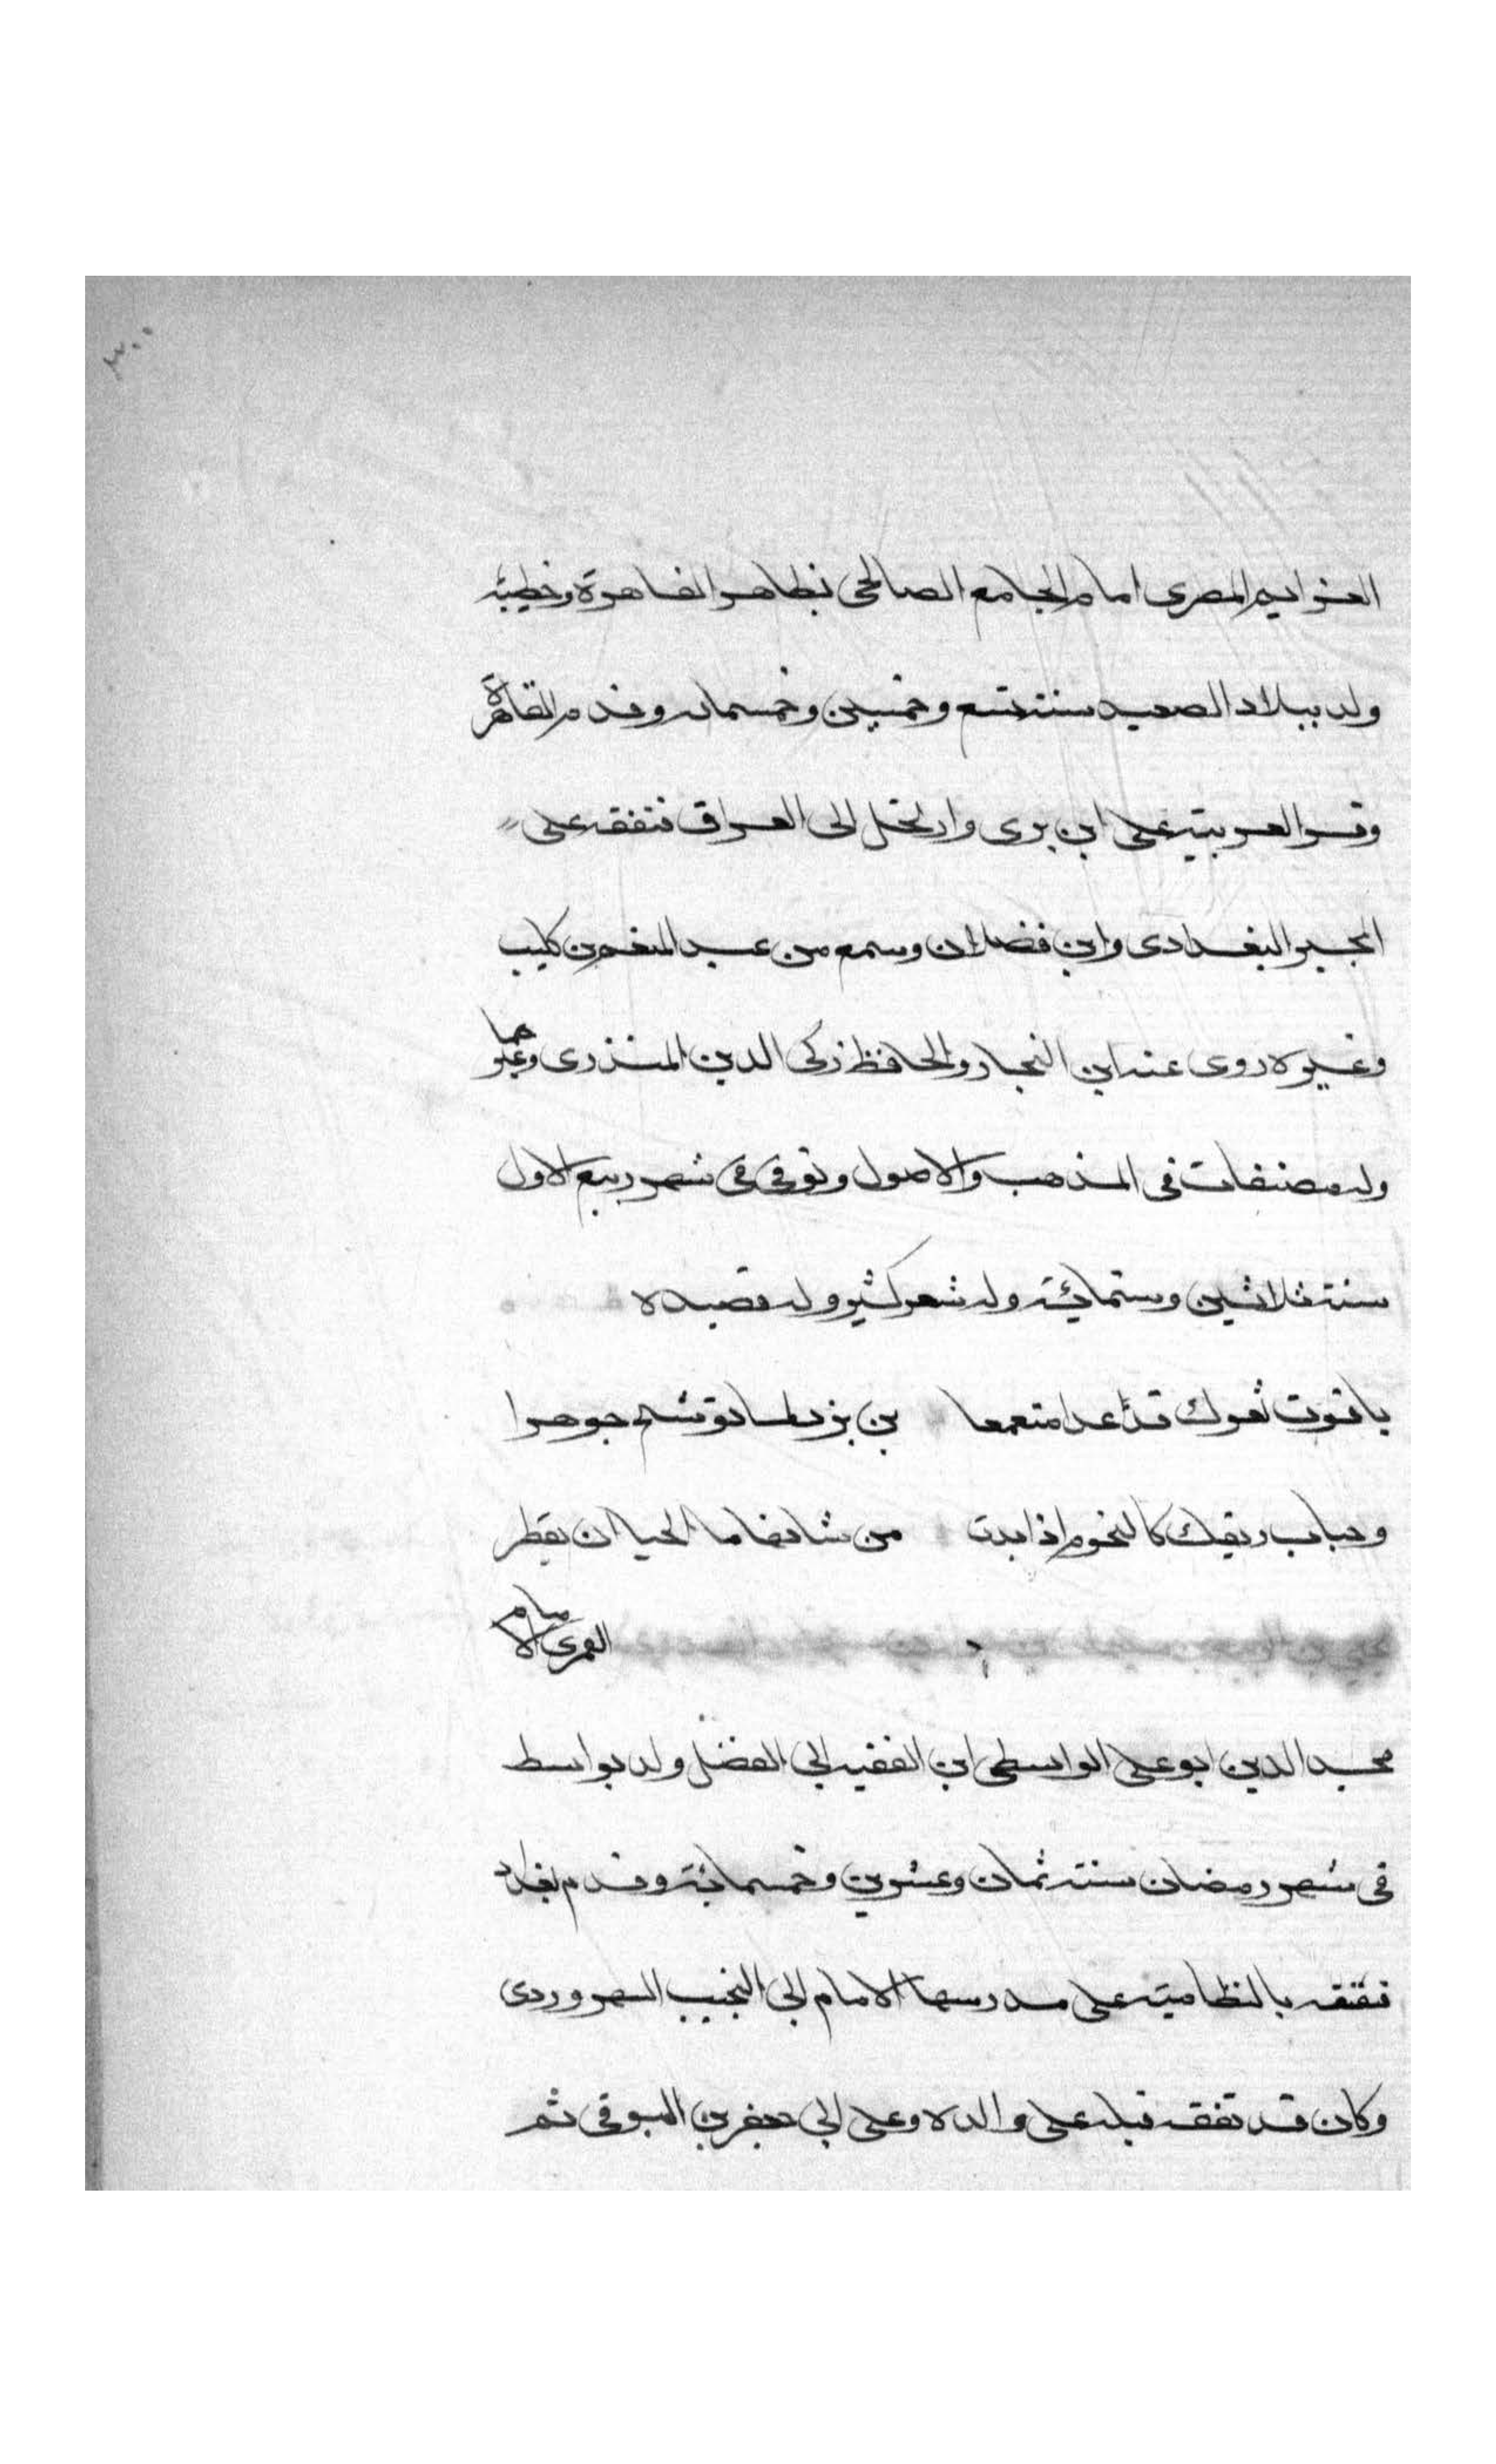 ٣٠٠
المصرى امام الجامع الصالحى بظاهر القاهرة وخطيبه
ولد ببلاد الصعيد سنة تسع وخمسين وخمسمائه وقدم القاهرة
وقرا العربية على ابن برى وارتحل الى العراق فتفقه على
المجير البغدادى وابن فضلان وسمع من عبد المنعم بن كليب
وغيره روى عنه ابن النجار والحافظ زكى الدين المنذرى وغيرهما
وله مصنفات فى المذهب والاصول وتوفى فى شهر ربيع الاول
سنة ثلاثين وستمائة وله شعر كثير وله قصيده
ياقوت ثغرك قد غدا جوهرا
وحباب ريقك كالنجوم اذا بدت من ما الحيا ان يقطر
العمرى الامام
مجد الدين ابو على الواسطى ابن الفقيه ابى الفضل ولد بواسط
فى شهر رمضان سنة ثمان وعشرين وخمسمائة وقدم بغداد
فتفقه بالنظامية على مدرسها الامام ابى النجيب السهروردى
وكان قد تفقه قبله على والده وعلى ابى جعفر بن البوقى ثم